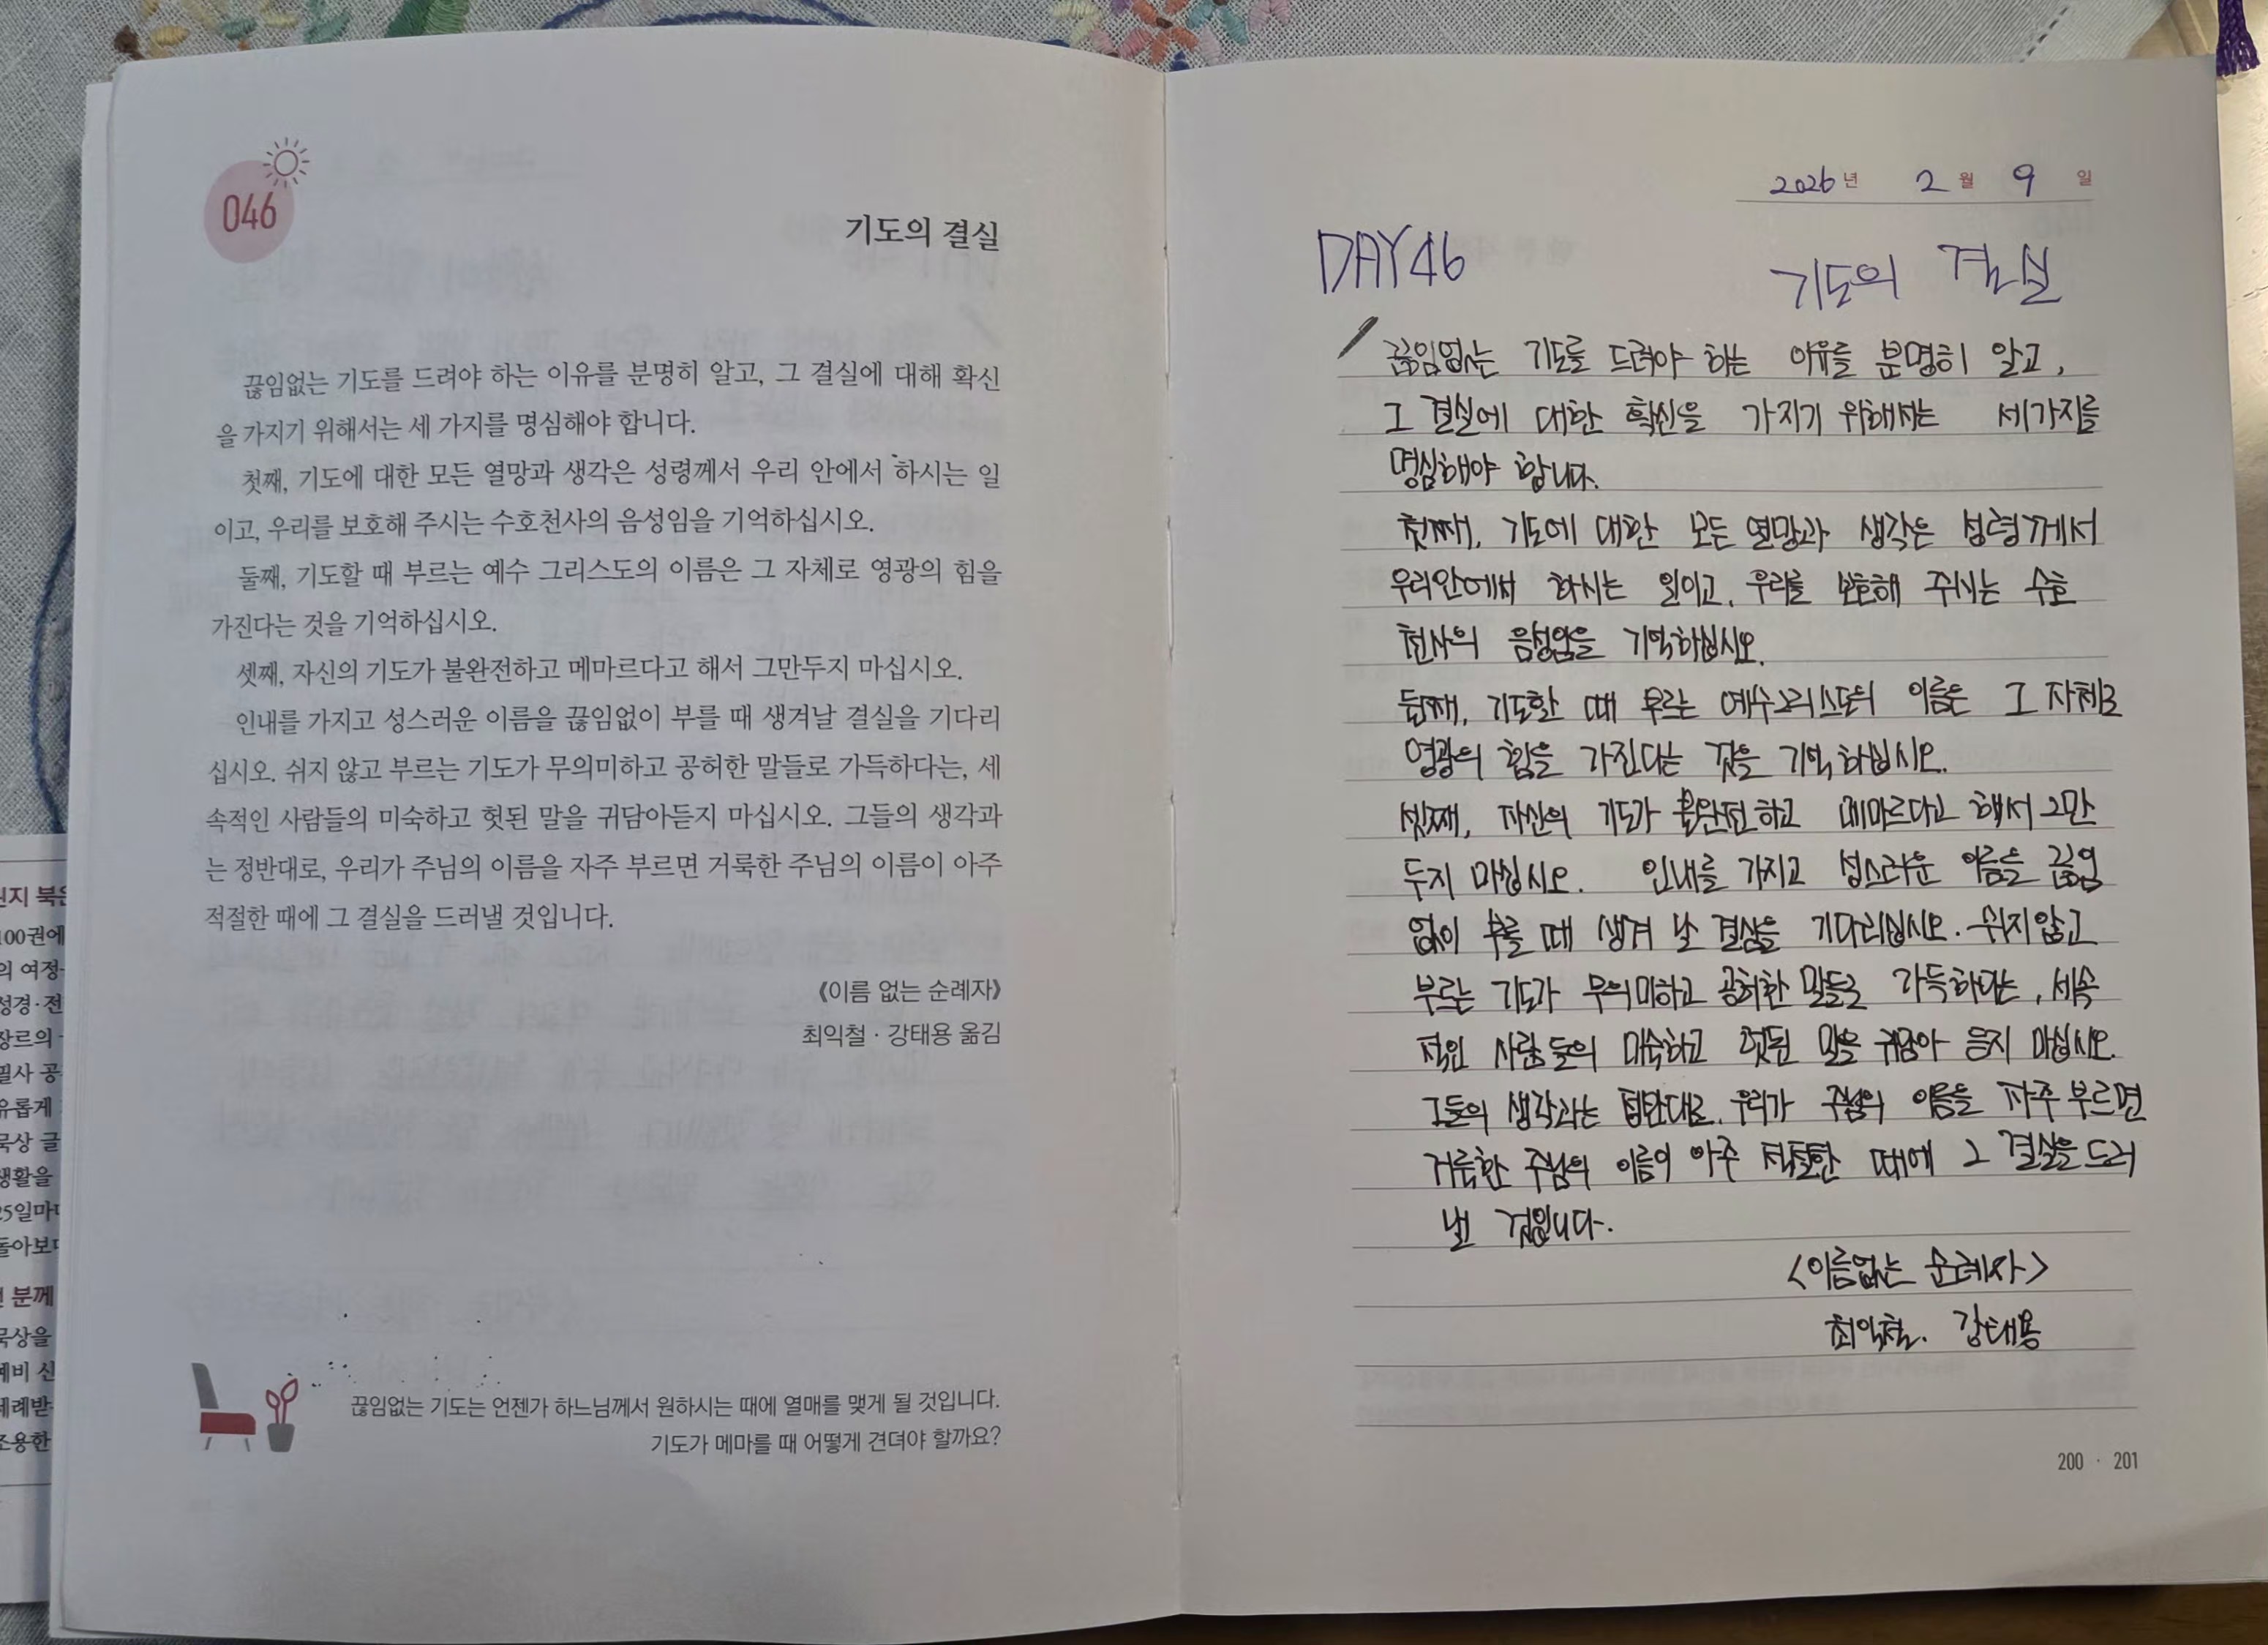 046
기도의 결실
끊임없는 기도를 드려야 하는 이유를 분명히 알고, 그 결실에 대해 확신
을 가지기 위해서는 세 가지를 명심해야 합니다.
첫째, 기도에 대한 모든 열망과 생각은 성령께서 우리 안에서 하시는 일
이고, 우리를 보호해 주시는 수호천사의 음성임을 기억하십시오.
둘째, 기도할 때 부르는 예수 그리스도의 이름은 그 자체로 영광의 힘을
가진다는 것을 기억하십시오.
셋째, 자신의 기도가 불완전하고 메마르다고 해서 그만두지 마십시오.
인내를 가지고 성스러운 이름을 끊임없이 부를 때 생겨날 결실을 기다리
십시오. 쉬지 않고 부르는 기도가 무의미하고 공허한 말들로 가득하다는, 세
속적인 사람들의 미숙하고 헛된 말을 귀담아듣지 마십시오. 그들의 생각과
는 정반대로, 우리가 주님의 이름을 자주 부르면 거룩한 주님의 이름이 아주
적절한 때에 그 결실을 드러낼 것입니다.
《이름 없는 순례자》
최익철 · 강태용 옮김
끊임없는 기도는 언젠가 하느님께서 원하시는 때에 열매를 맺게 될 것입니다.
기도가 메마를 때 어떻게 견뎌야 할까요?
100권에
의 여정
성경·전
장르의
필사 공
유롭게
묵상 글
생활을
25일마다
돌아보다
분께
묵상을
예비 신
세례받
조용한
2026년 2월 9일
DAY 46
기도의 결실
끊임없는 기도를 드려야 하는 이유를 분명히 알고,
그 결실에 대한 확신을 가지기 위해서는 세가지를
명심해야 합니다.
첫째, 기도에 대한 모든 열망과 생각은 성령께서
우리안에서 하시는 일이고, 우리를 보호해 주시는 수호
천사의 음성임을 기억하십시오.
둘째, 기도할 때 부르는 예수그리스도의 이름은 그 자체로
영광의 힘을 가진다는 것을 기억하십시오.
셋째, 자신의 기도가 불완전하고 메마르다고 해서 그만
두지 마십시오. 인내를 가지고 성스러운 이름을 끊임
없이 부를 때 생겨 날 결실을 기다리십시오. 쉬지않고
부르는 기도가 무의미하고 공허한 말들로 가득하다는, 세속
적인 사람들의 미숙하고 헛된 말을 귀담아 듣지 마십시오.
그들의 생각과는 정반대로, 우리가 주님의 이름을 자주 부르면
거룩한 주님의 이름이 아주 적절한 때에 그 결실을 드러
낼 것입니다.
<이름없는 순례자>
최익철. 강태용
200 · 201